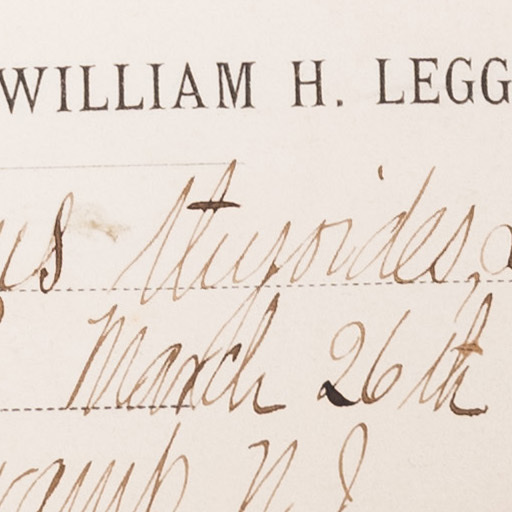 WILLIAM H. LEGG
us thyoides,
March 26th
wamp N. J.